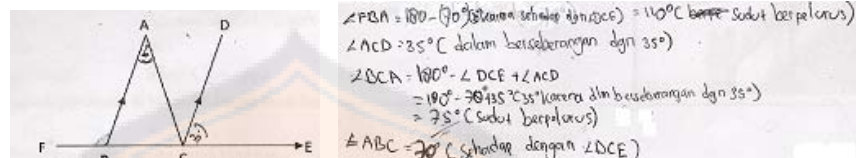 A D
F E
∠FBA = 180 - (70° karena sehadap dgn ∠DCE) = 110° ( sudut berpelurus)
∠ACD = 35° ( dalam berseberangan dgn 35°)
∠BCA = 180° - ∠DCE + ∠ACD
= 180° - 70° + 35° (35° karena dlm berseberangan dgn 35°)
= 75° ( sudut berpelurus)
∠ABC = 70° ( sehadap dengan ∠DCE )